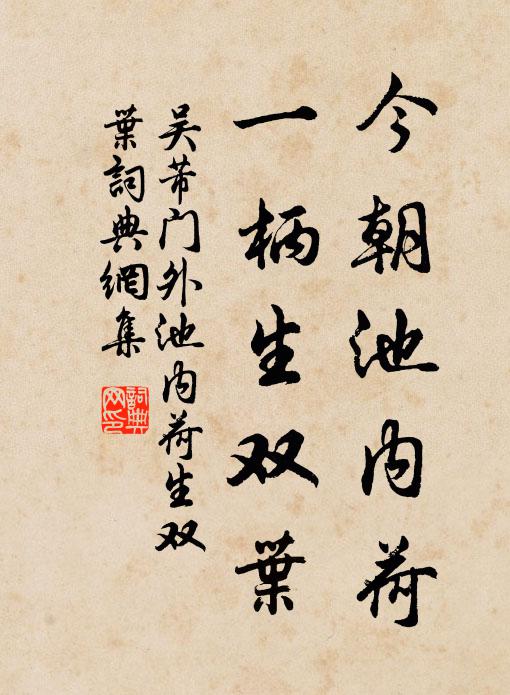 今朝池内荷
一柄生双葉
吴芾门外池内荷生双
葉詞典網集
詞典网印